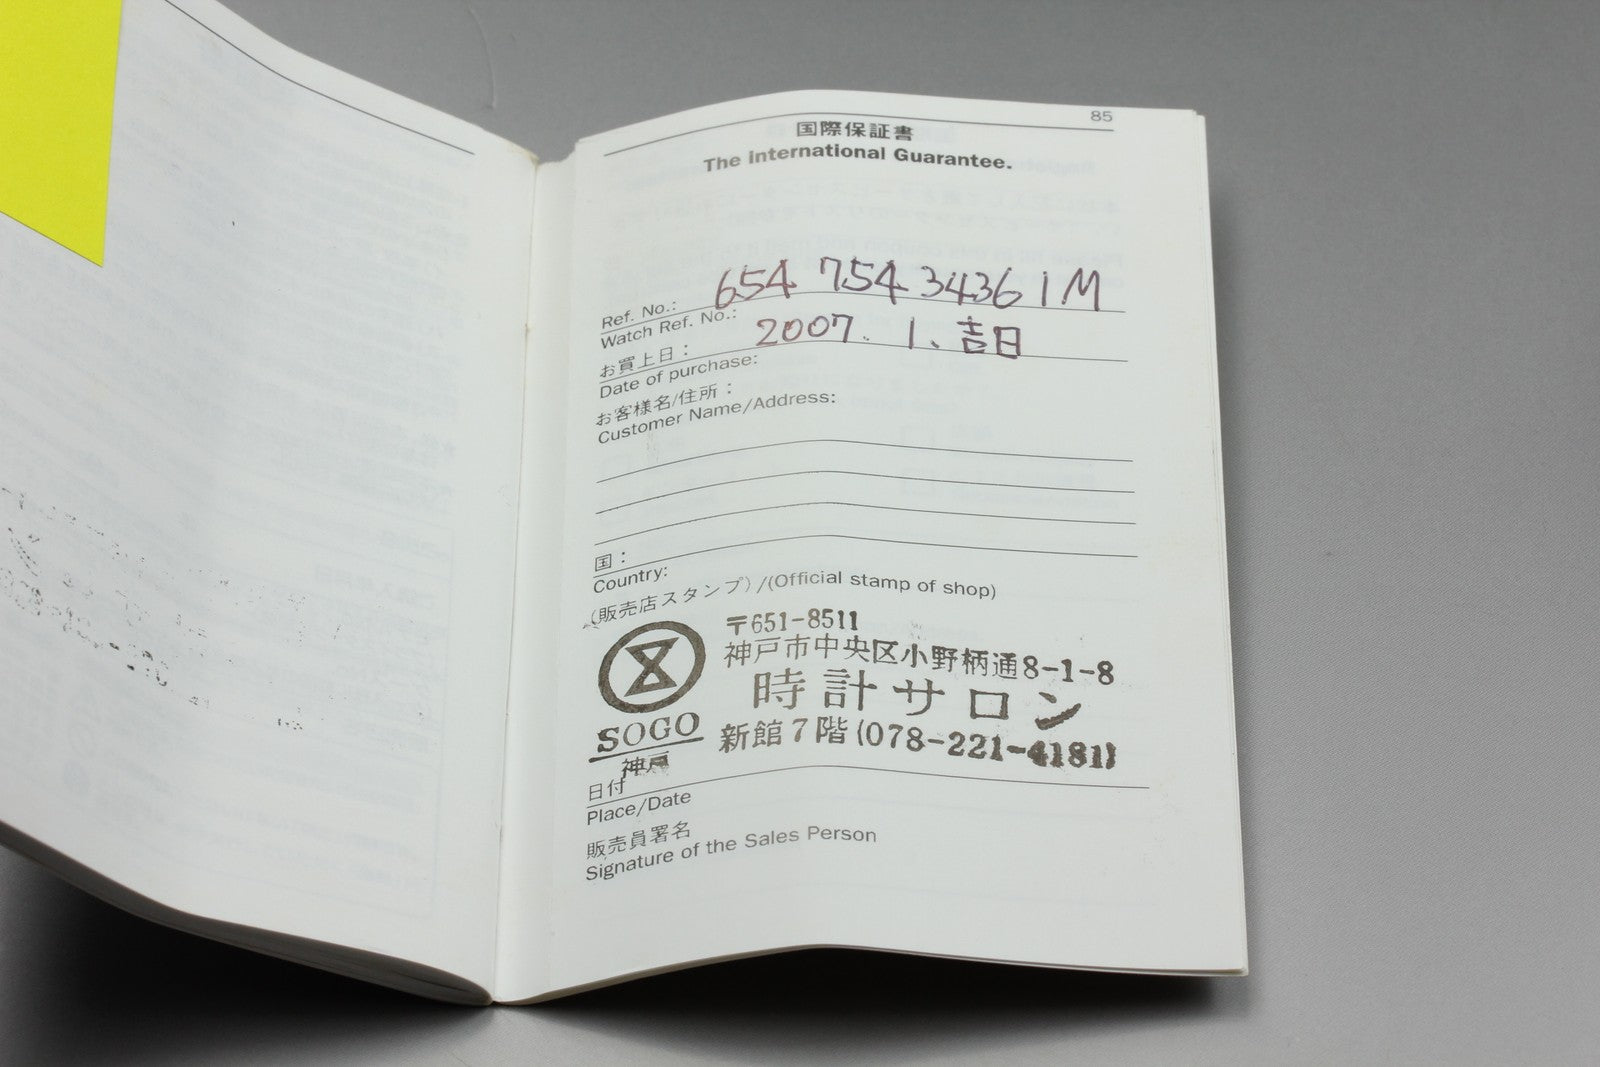 85
国際保証書
The International Guarantee.
Ref. No.: 654 754 3436 1M
Watch Ref. No.:
お買上日： 2007. 1. 吉日
Date of purchase:
お客様名/住所：
Customer Name/Address:
国：
Country:
(販売店スタンプ)/(Official stamp of shop)
〒651-8511
神戸市中央区小野柄通8-1-8
時計サロン
新館7階(078-221-4181)
SOGO
神戸
日付
Place/Date
販売員署名
Signature of the Sales Person